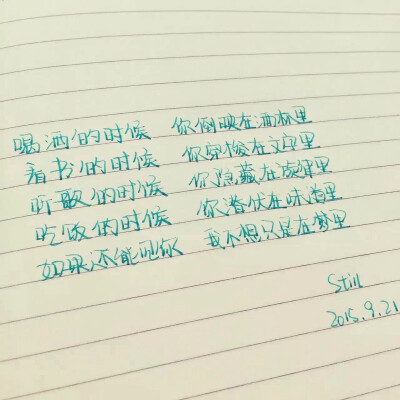 喝酒的时候 你倒映在酒杯里
看书的时候 你穿梭在文字里
听歌的时候 你隐藏在旋律里
吃饭的时候 你潜伏在味道里
如果还能见你 我不想只是在梦里
Still
2015.9.21